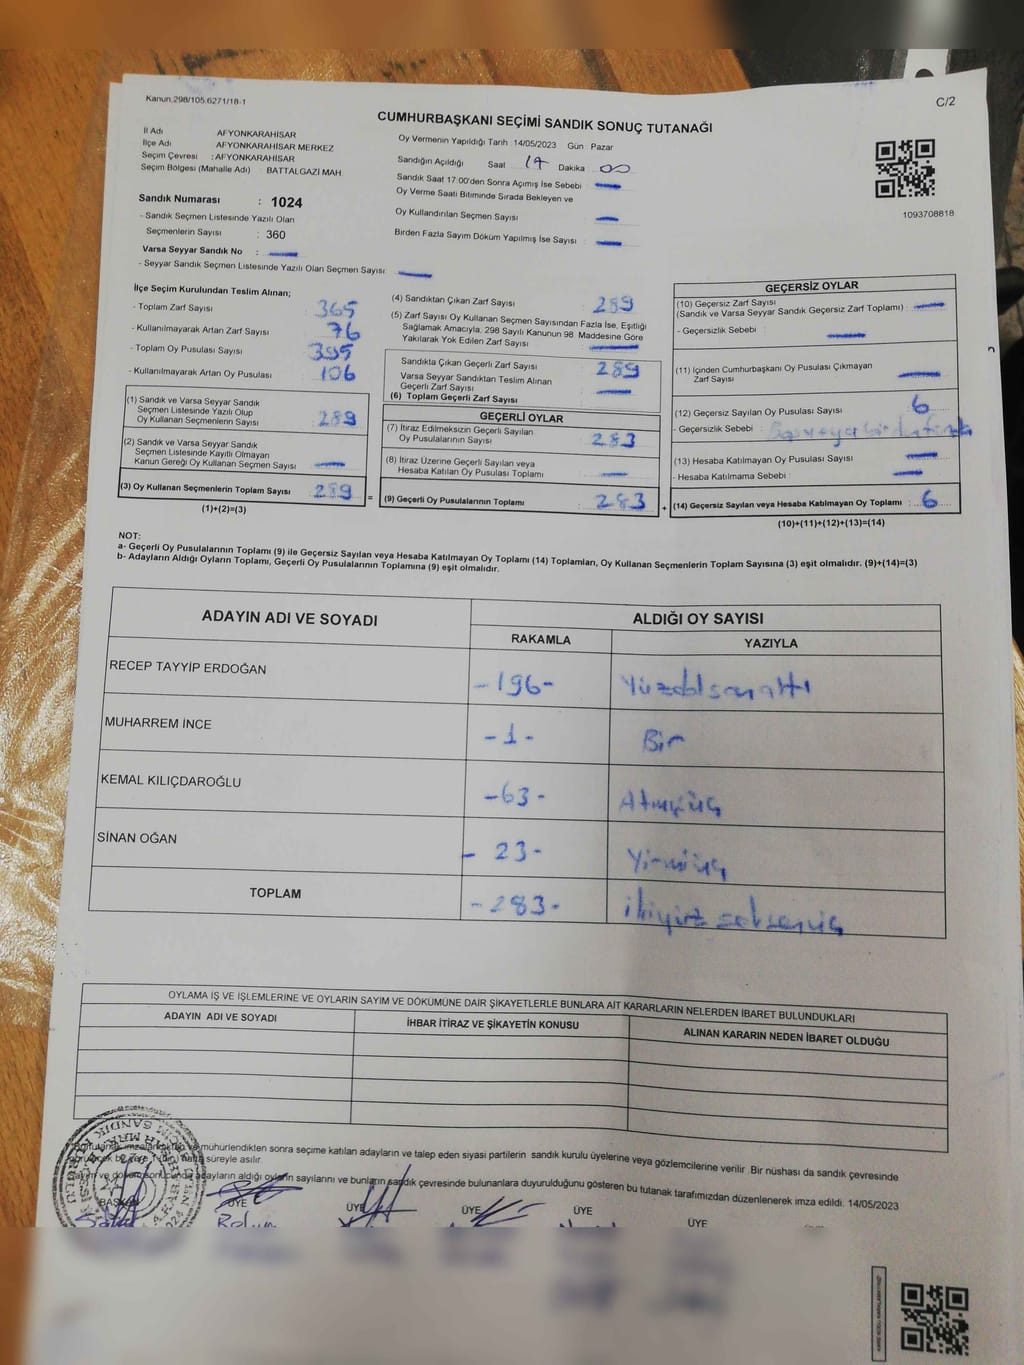 Kanun,298/105.6271/18-1
C/2
CUMHURBAŞKANI SEÇİMİ SANDIK SONUÇ TUTANAĞI
İl Adı AFYONKARAHİSAR
İlçe Adı AFYONKARAHİSAR MERKEZ
Seçim Çevresi : AFYONKARAHİSAR
Seçim Bölgesi (Mahalle Adı) BATTALGAZİ MAH
Oy Vermenin Yapıldığı Tarih 14/05/2023 Gün Pazar
Sandığın Açıldığı Saat 17 Dakika 00
Sandık Saat 17:00'den Sonra Açımış İse Sebebi
Oy Verme Saati Bitiminde Sırada Bekleyen ve
Oy Kullandırılan Seçmen Sayısı
Birden Fazla Sayım Döküm Yapılmış İse Sayısı
1093708818
Sandık Numarası : 1024
- Sandık Seçmen Listesinde Yazılı Olan
Seçmenlerin Sayısı : 360
Varsa Seyyar Sandık No :
- Seyyar Sandık Seçmen Listesinde Yazılı Olan Seçmen Sayısı:
İlçe Seçim Kurulundan Teslim Alınan;
- Toplam Zarf Sayısı 365
- Kullanılmayarak Artan Zarf Sayısı 76
- Toplam Oy Pusulası Sayısı 395
- Kullanılmayarak Artan Oy Pusulası 106
(1) Sandık ve Varsa Seyyar Sandık
Seçmen Listesinde Yazılı Olup
Oy Kullanan Seçmenlerin Sayısı 289
(2) Sandık ve Varsa Seyyar Sandık
Seçmen Listesinde Kayıtlı Olmayan
Kanun Gereği Oy Kullanan Seçmen Sayısı
(3) Oy Kullanan Seçmenlerin Toplam Sayısı 289
(1)+(2)=(3)
(4) Sandıktan Çıkan Zarf Sayısı 289
(5) Zarf Sayısı Oy Kullanan Seçmen Sayısından Fazla İse, Eşitliği
Sağlamak Amacıyla, 298 Sayılı Kanunun 98. Maddesine Göre
Yakılarak Yok Edilen Zarf Sayısı
Sandıkta Çıkan Geçerli Zarf Sayısı 289
Varsa Seyyar Sandıktan Teslim Alınan
Geçerli Zarf Sayısı
(6) Toplam Geçerli Zarf Sayısı
GEÇERLİ OYLAR
(7) İtiraz Edilmeksizin Geçerli Sayılan
Oy Pusulalarının Sayısı 283
(8) İtiraz Üzerine Geçerli Sayılan veya
Hesaba Katılan Oy Pusulası Toplamı
= (9) Geçerli Oy Pusulalarının Toplamı 283 +
GEÇERSİZ OYLAR
(10) Geçersiz Zarf Sayısı
(Sandık ve Varsa Seyyar Sandık Geçersiz Zarf Toplamı) :
- Geçersizlik Sebebi :
(11) İçinden Cumhurbaşkanı Oy Pusulası Çıkmayan
Zarf Sayısı
(12) Geçersiz Sayılan Oy Pusulası Sayısı 6
- Geçersizlik Sebebi :
(13) Hesaba Katılmayan Oy Pusulası Sayısı
- Hesaba Katılmama Sebebi :
(14) Geçersiz Sayılan veya Hesaba Katılmayan Oy Toplamı 6
(10)+(11)+(12)+(13)=(14)
NOT:
a- Geçerli Oy Pusulalarının Toplamı (9) ile Geçersiz Sayılan veya Hesaba Katılmayan Oy Toplamı (14) Toplamları, Oy Kullanan Seçmenlerin Toplam Sayısına (3) eşit olmalıdır. (9)+(14)=(3)
b- Adayların Aldığı Oyların Toplamı, Geçerli Oy Pusulalarının Toplamına (9) eşit olmalıdır.
ADAYIN ADI VE SOYADI ALDIĞI OY SAYISI
RAKAMLA YAZIYLA
RECEP TAYYİP ERDOĞAN -196- Yüzdoksanaltı
MUHARREM İNCE -1- Bir
KEMAL KILIÇDAROĞLU -63- Atmışüç
SİNAN OĞAN - 23- Yirmiüç
TOPLAM -283- ikiyüz seksenüç
OYLAMA İŞ VE İŞLEMLERİNE VE OYLARIN SAYIM VE DÖKÜMÜNE DAİR ŞİKAYETLERLE BUNLARA AİT KARARLARIN NELERDEN İBARET BULUNDUKLARI
ADAYIN ADI VE SOYADI İHBAR İTİRAZ VE ŞİKAYETİN KONUSU ALINAN KARARIN NEDEN İBARET OLDUĞU
mühürlendikten sonra seçime katılan adayların ve talep eden siyasi partilerin sandık kurulu üyelerine veya gözlemcilerine verilir. Bir nüshası da sandık çevresinde
süreyle asılır.
adayların aldığı oyların sayılarını ve bunların sandık çevresinde bulunanlara duyurulduğunu gösteren bu tutanak tarafımızdan düzenlenerek imza edildi. 14/05/2023
BAŞKAN ÜYE ÜYE ÜYE ÜYE ÜYE